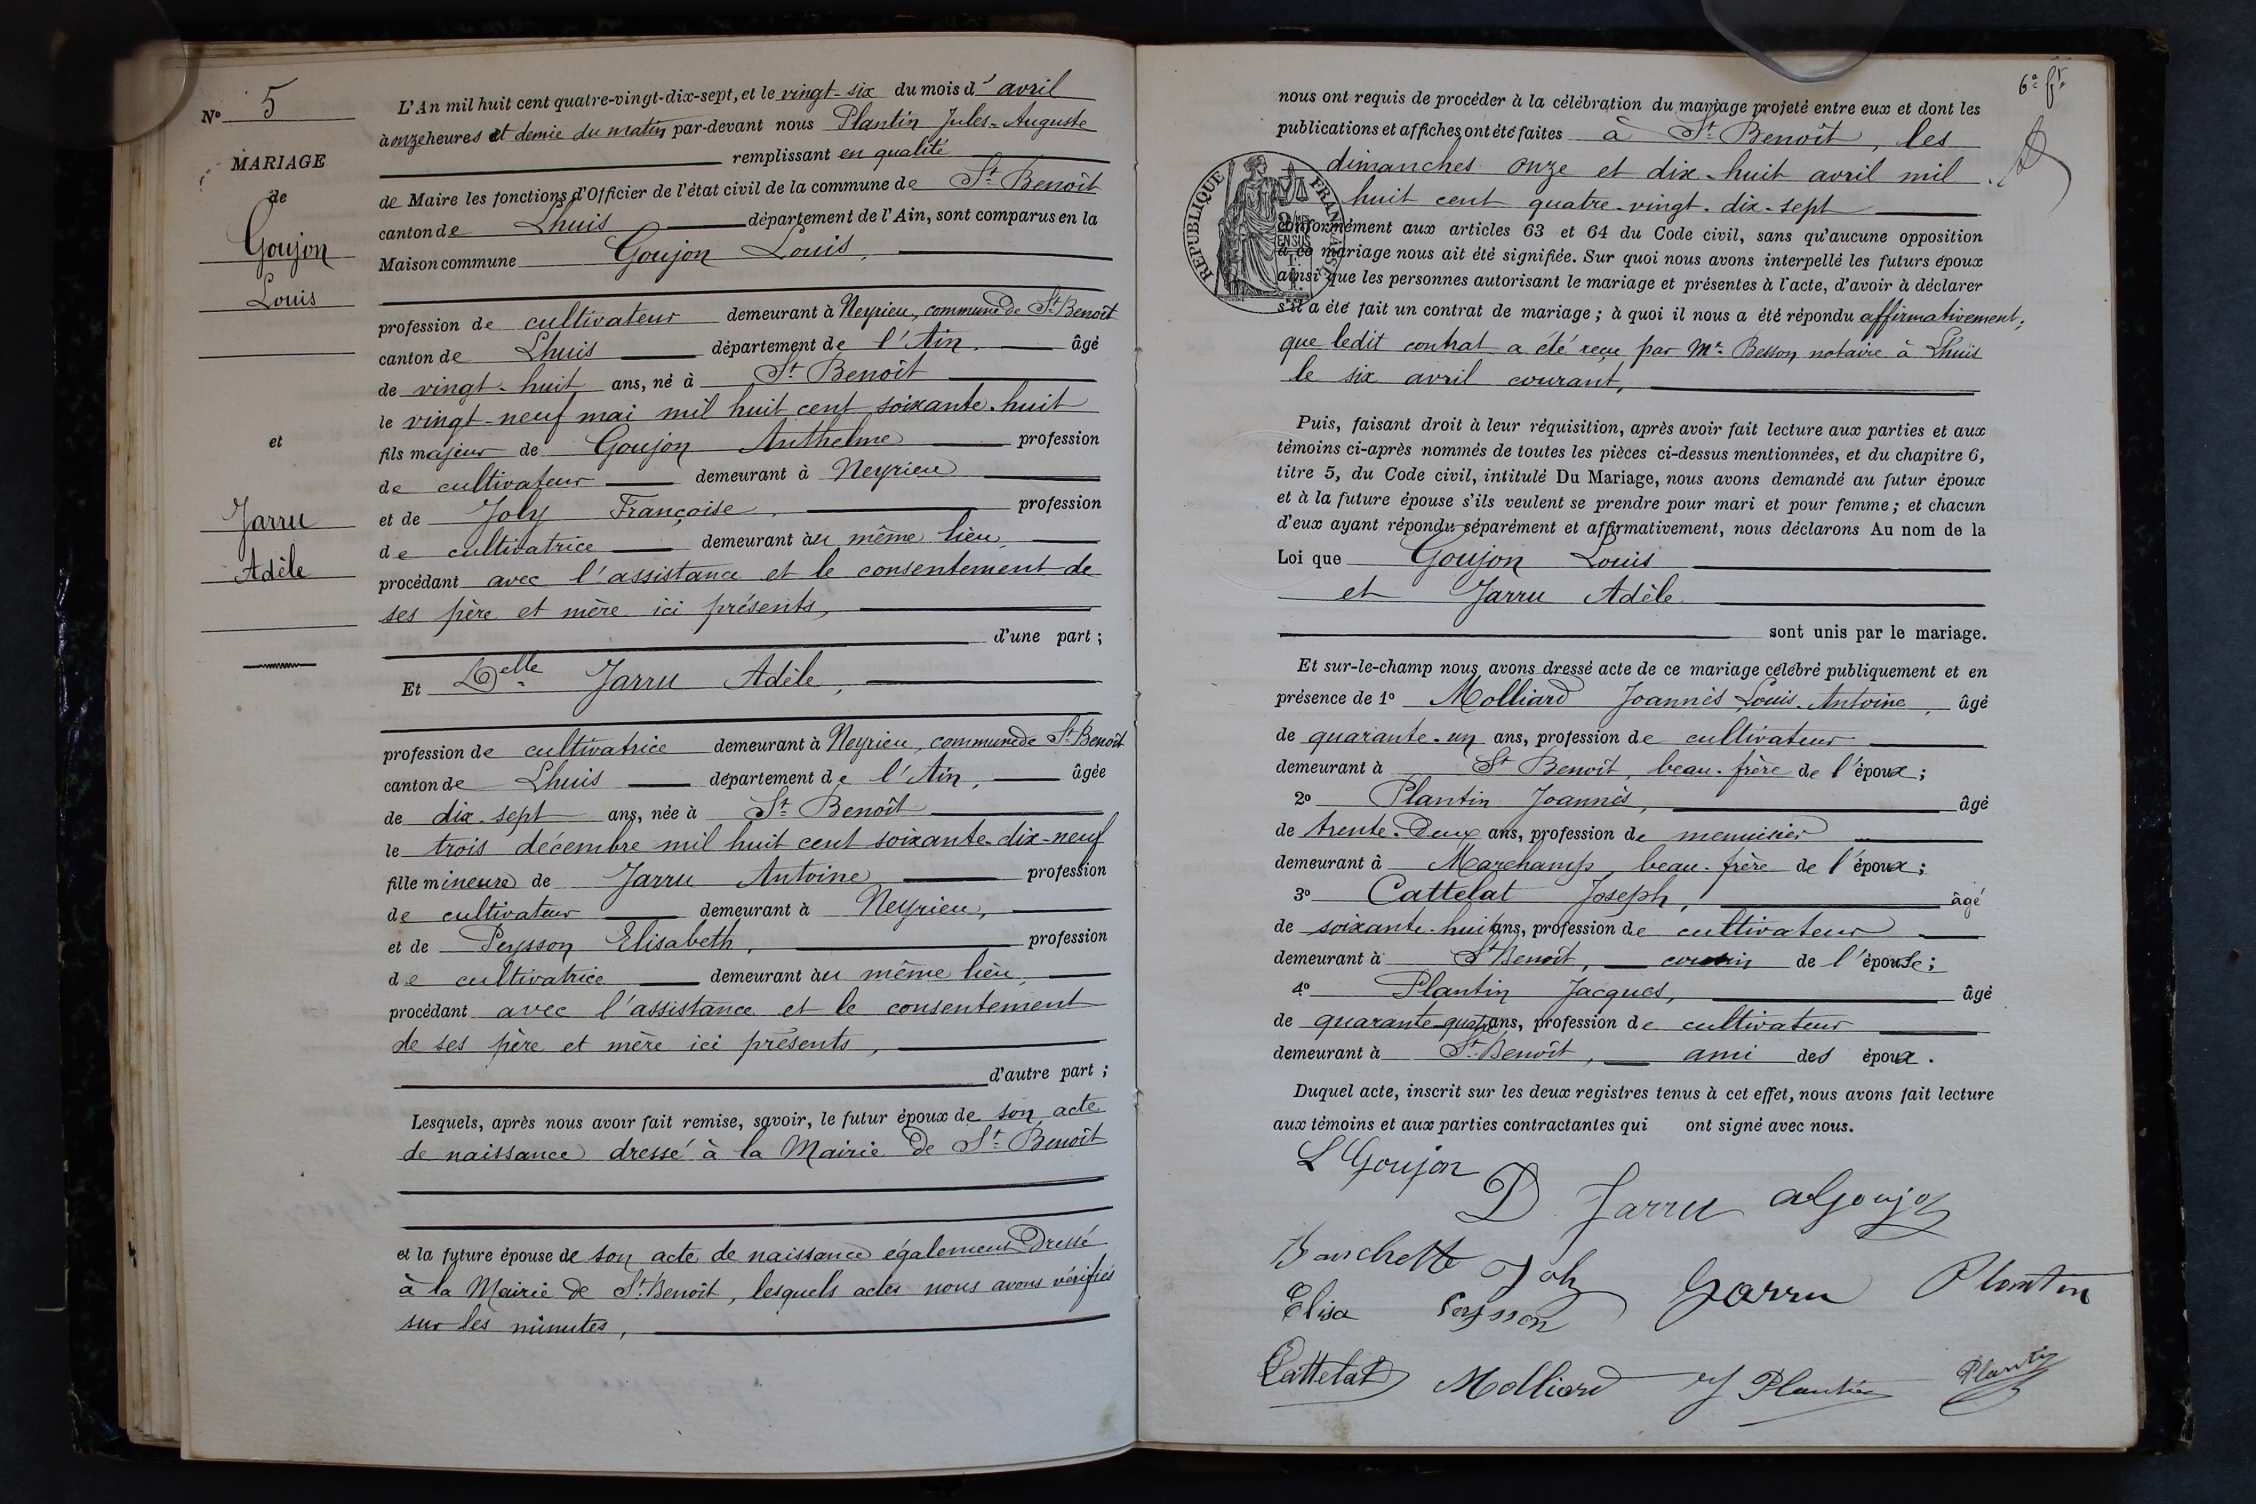 N° 5
MARIAGE
de
Goujon
Louis
et
Jarru
Adèle
L'An mil huit cent quatre-vingt-dix-sept, et le vingt-six du mois d'avril
à onze heures et demie du matin par-devant nous Plantin Jules-Auguste
remplissant en qualité
de Maire les fonctions d'Officier de l'état civil de la commune de St Benoît
canton de Lhuis département de l'Ain, sont comparus en la
Maison commune Goujon Louis,
profession de cultivateur demeurant à Neyrieu, commune de St Benoît
canton de Lhuis département de l'Ain, âgé
de vingt-huit ans, né à St Benoît
le vingt-neuf mai mil huit cent soixante-huit
fils majeur de Goujon Anthelme profession
de cultivateur demeurant à Neyrieu
et de Joly Françoise, profession
de cultivatrice demeurant au même lieu,
procédant avec l'assistance et le consentement de
ses père et mère ici présents,
d'une part ;
Et Delle Jarru Adèle,
profession de cultivatrice demeurant à Neyrieu, commune de St Benoît
canton de Lhuis département de l'Ain, âgée
de dix-sept ans, née à St Benoît
le trois décembre mil huit cent soixante-dix-neuf
fille mineure de Jarru Antoine profession
de cultivateur demeurant à Neyrieu,
et de Peysson Elisabeth, profession
de cultivatrice demeurant au même lieu,
procédant avec l'assistance et le consentement
de ses père et mère ici présents,
d'autre part ;
Lesquels, après nous avoir fait remise, savoir, le futur époux de son acte
de naissance dressé à la Mairie de St Benoît
et la future épouse de son acte de naissance également dressé
à la Mairie de St Benoît, lesquels actes nous avons vérifiés
sur les minutes,
6e ft
nous ont requis de procéder à la célébration du mariage projeté entre eux et dont les
publications et affiches ont été faites à St Benoît, les
dimanches onze et dix-huit avril mil
huit cent quatre-vingt-dix-sept
RÉPUBLIQUE FRANÇAISE
conformément aux articles 63 et 64 du Code civil, sans qu'aucune opposition
à ce mariage nous ait été signifiée. Sur quoi nous avons interpellé les futurs époux
ainsi que les personnes autorisant le mariage et présentes à l'acte, d'avoir à déclarer
s'il a été fait un contrat de mariage ; à quoi il nous a été répondu affirmativement,
que ledit contrat a été reçu par Me Besson notaire à Lhuis
le six avril courant,
Puis, faisant droit à leur réquisition, après avoir fait lecture aux parties et aux
témoins ci-après nommés de toutes les pièces ci-dessus mentionnées, et du chapitre 6,
titre 5, du Code civil, intitulé Du Mariage, nous avons demandé au futur époux
et à la future épouse s'ils veulent se prendre pour mari et pour femme ; et chacun
d'eux ayant répondu séparément et affirmativement, nous déclarons Au nom de la
Loi que Goujon Louis
et Jarru Adèle
sont unis par le mariage.
Et sur-le-champ nous avons dressé acte de ce mariage célébré publiquement et en
présence de 1° Molliard Joannès Louis-Antoine, âgé
de quarante-un ans, profession de cultivateur
demeurant à St Benoît, beau-frère de l'époux ;
2° Plantin Joannès, âgé
de trente-deux ans, profession de menuisier
demeurant à Marchamp beau-frère de l'époux ;
3° Cattelat Joseph, âgé
de soixante-huit ans, profession de cultivateur
demeurant à St Benoît, cousin de l'épouse ;
4° Plantin Jacques, âgé
de quarante-quatre ans, profession de cultivateur
demeurant à St Benoît, ami des époux.
Duquel acte, inscrit sur les deux registres tenus à cet effet, nous avons fait lecture
aux témoins et aux parties contractantes qui ont signé avec nous.
L Goujon
D Jarru aGoujon
Joly Jarru Plantin
Elisa Peysson
Cattelat Molliard J Plantin Plantin